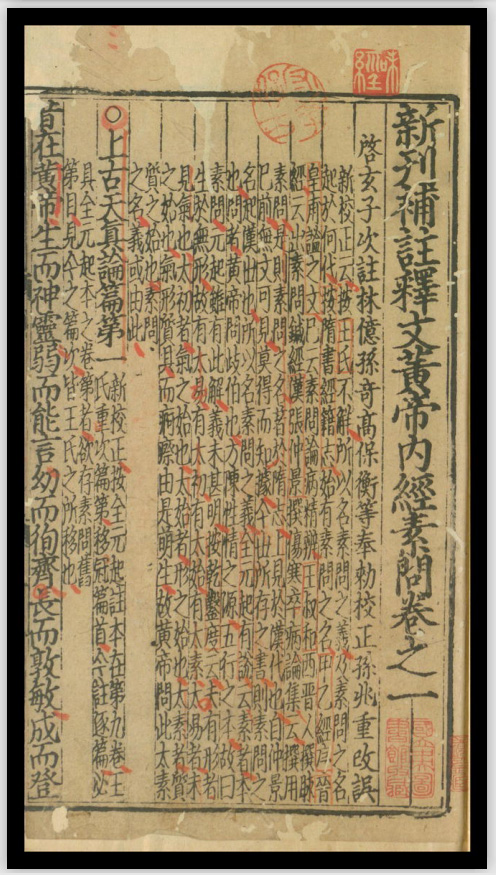 新刋補註釋文黃帝內經素問卷之一
啓玄子次註林億孫竒高保衡等奉勑校正孫兆重改誤
新校正云按王氏不解所以名素問之義及素問之名
起於何代按隋書經籍志始有素問之名甲乙經序晉
皇甫謐之文已云素問論病精辨王叔和西晉人撰脉
經云出素問鍼經漢張仲景撰傷寒卒病論集云撰用
素問是則素問之名著於隋志上見於漢代也自仲景
已前無文可見莫得而知據今世所存之書則素問之
名起漢世也所以名素問之義全元起有說云素者本
也問者黃帝問歧伯也方陳性情之源五行之本故曰
素問元起雖有此解義未甚明按乾鑿度云夫有形者
生於無形故有太易有太初有太始有太素太易者未
見氣也太初者氣之始也太始者形之始也太素者質
之始也氣形質具而痾瘵由是萌生故黃帝問此太素
質之始也素問
之名義或由此
○上古天真論篇第一
新校正按全元起註本在第九卷王
氏重次篇第移冠篇首今註逐篇必
具全元起本之卷第者欲存素問舊
第目見今之篇次皆王氏之所移也
昔在黃帝生而神靈弱而能言幼而徇齊長而敦敏成而登
味經